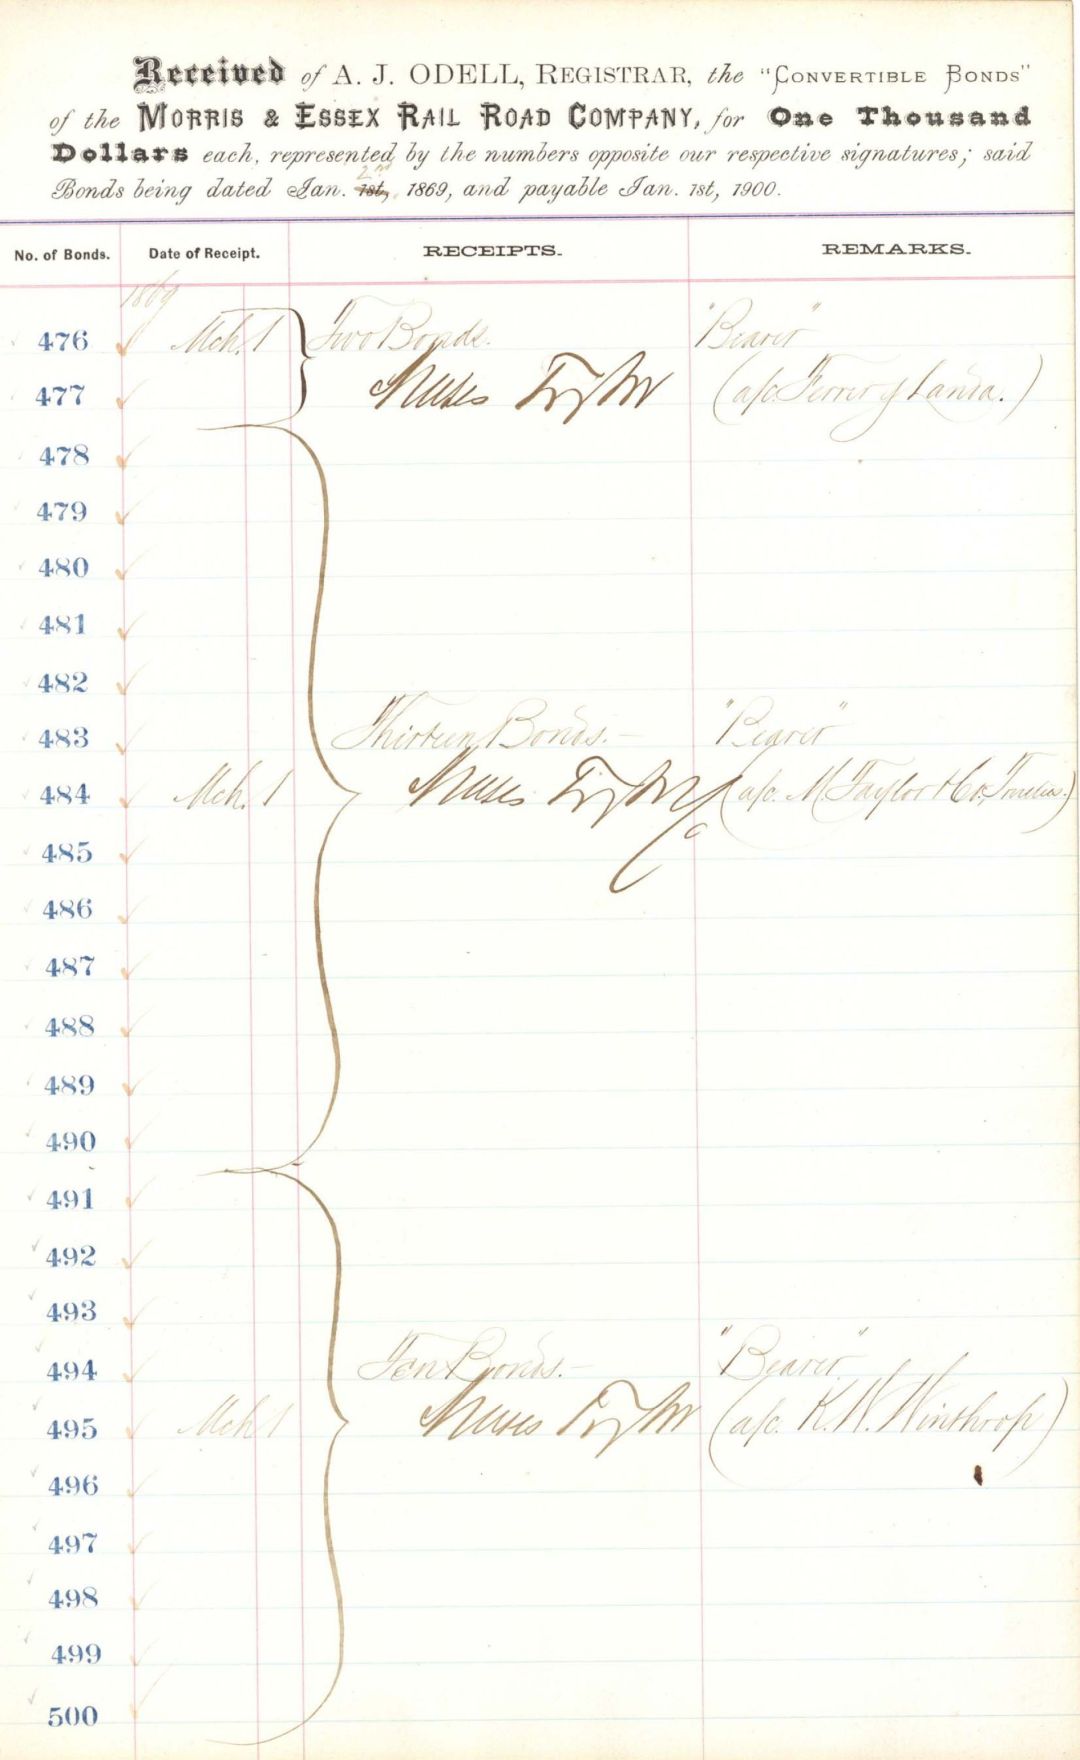 Received of A. J. ODELL, REGISTRAR, the "CONVERTIBLE BONDS"
of the MORRIS & ESSEX RAIL ROAD COMPANY, for One Thousand
Dollars each, represented by the numbers opposite our respective signatures; said
2nd
Bonds being dated Jan. 1st, 1869, and payable Jan. 1st, 1900.
No. of Bonds. Date of Receipt. RECEIPTS. REMARKS.
1869
476 Mch. 1 Two Bonds. "Bearer"
477 Moses Taylor (a/c. Ferrer y Landa.)
478
479
480
481
482
483 Thirteen Bonds. "Bearer"
484 Mch. 1 Moses Taylor (a/c. M. Taylor & Co.
485
486
487
488
489
490
491
492
493
494 Ten Bonds. "Bearer"
495 Mch 1 Moses Taylor (a/c. K. W. Winthrop)
496
497
498
499
500